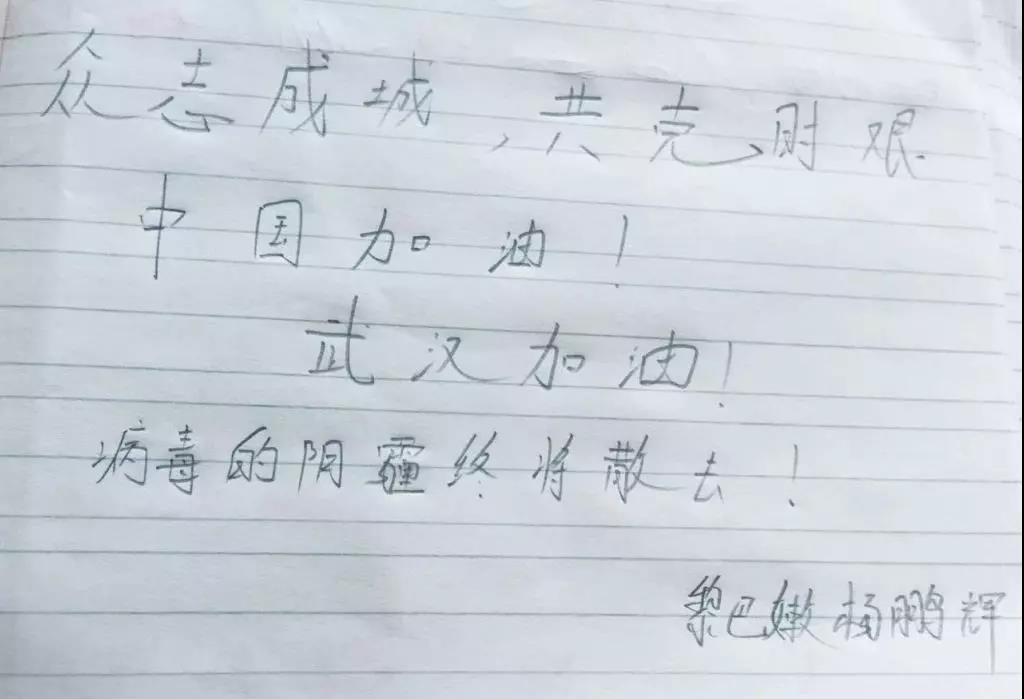 众志成城,共克时艰.
中国加油!
武汉加油!
病毒的阴霾终将散去!
黎巴嫩杨鹏辉